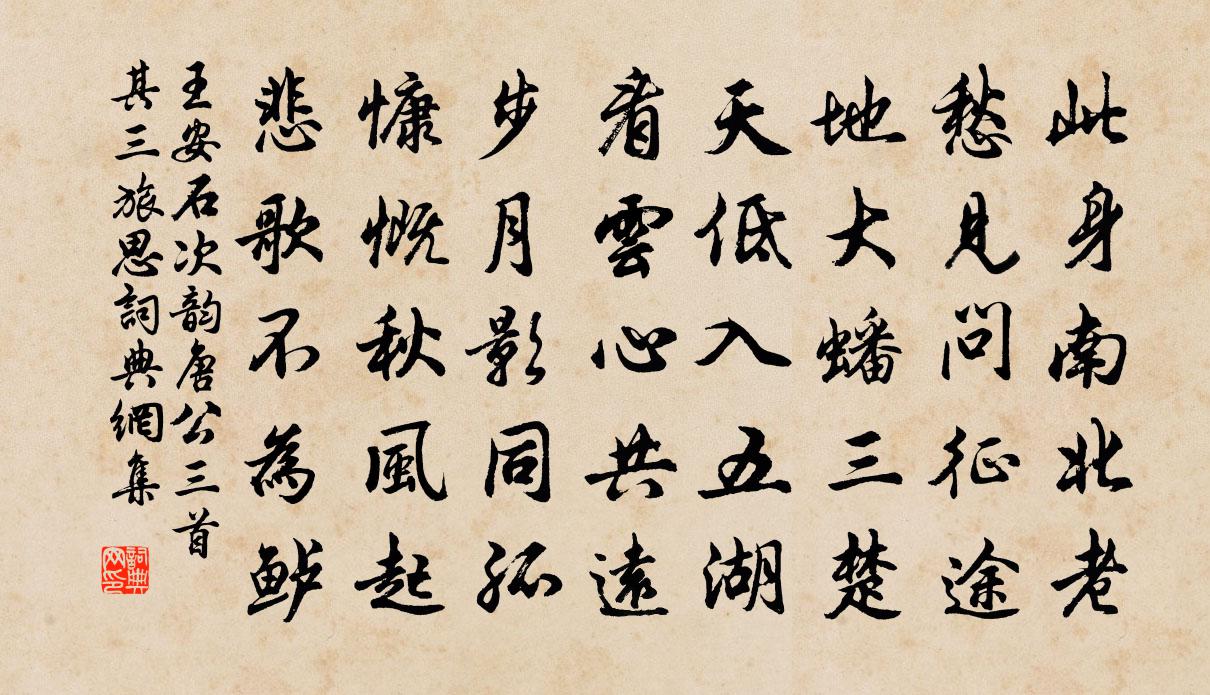 此身南北老
愁見問征途
地大蟠三楚
天低入五湖
看雲心共遠
步月影同孤
慷慨秋風起
悲歌不為鱸
王安石次韵唐公三首
其三旅思詞典網集
詞典网印